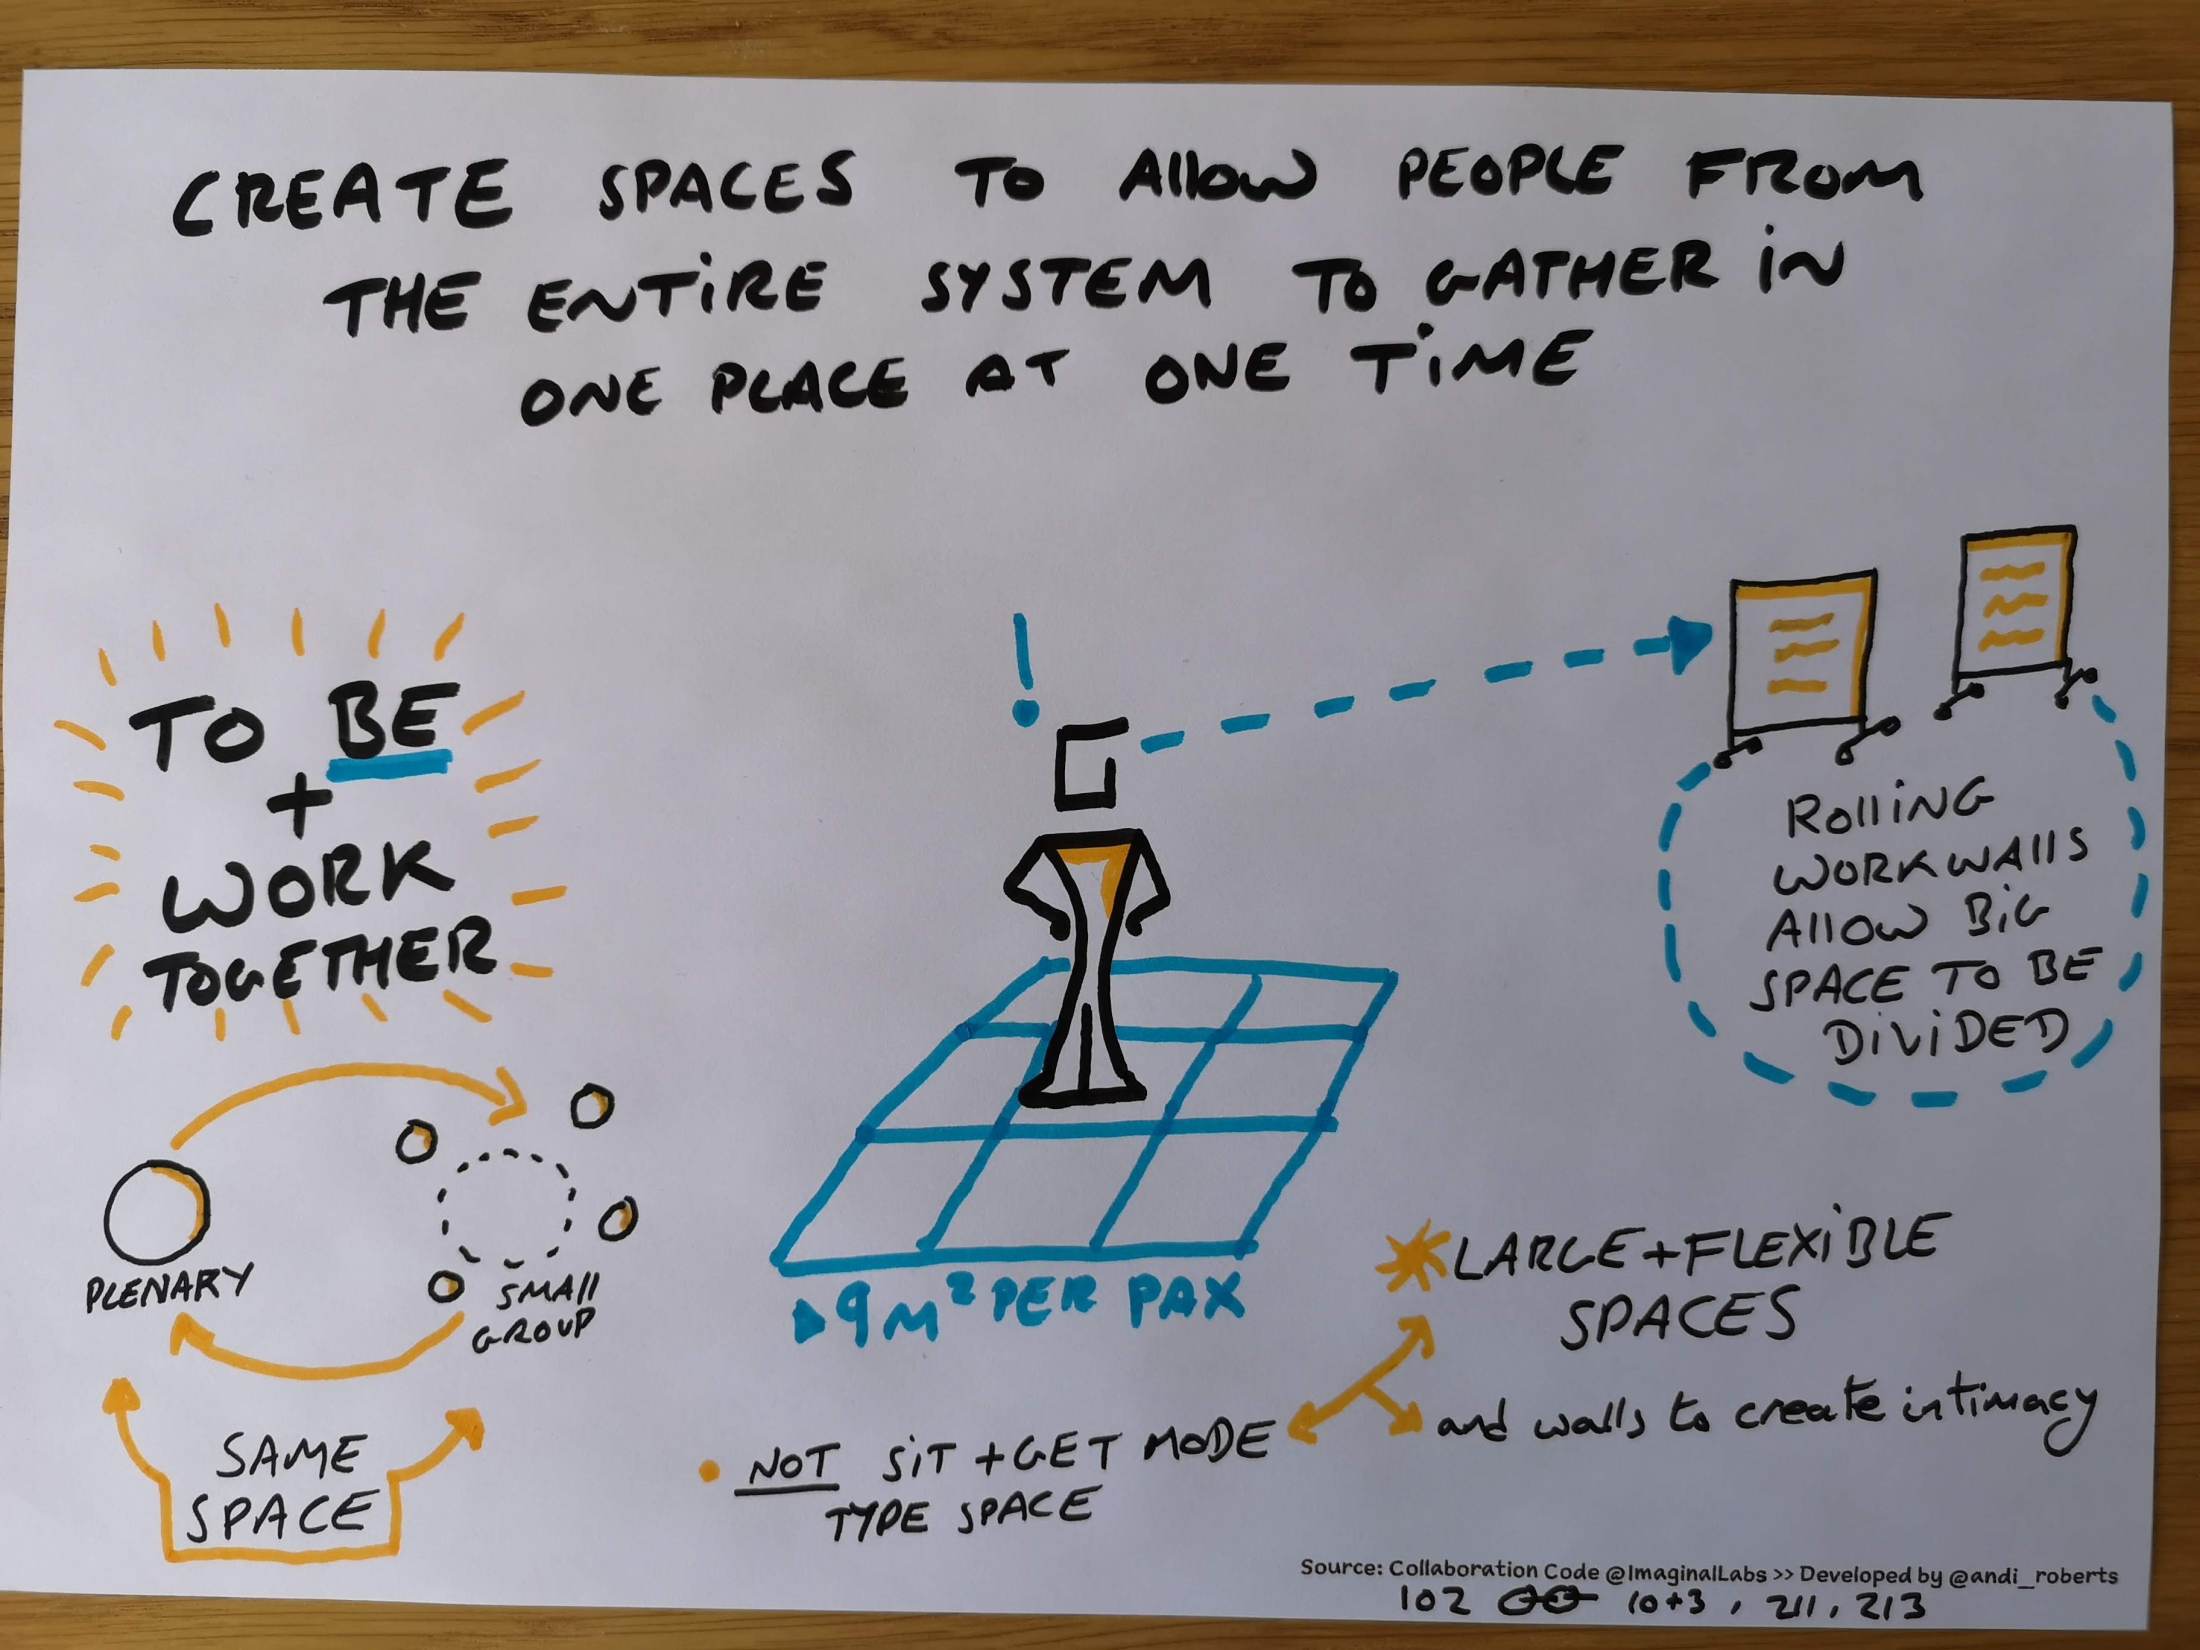 CREATE SPACES TO Allow PEOPLE FROM
THE ENTiRE SYSTEM TO GATHER iN
ONE PLACE AT ONE TiME
TO BE
+
WORK
TOGETHER
PLENARY
SMAll
GROUP
SAME
SPACE
!
>9M² PER PAX
RolliNG
WORKWAllS
Allow BiG
SPACE TO BE
DiViDED
LARGE + FLEXiBLE
SPACES
and walls to create intimacy
• NOT SiT + GET MODE
TYPE SPACE
Source: Collaboration Code @ImaginalLabs >> Developed by @andi_roberts
102 10+3, 211, 213